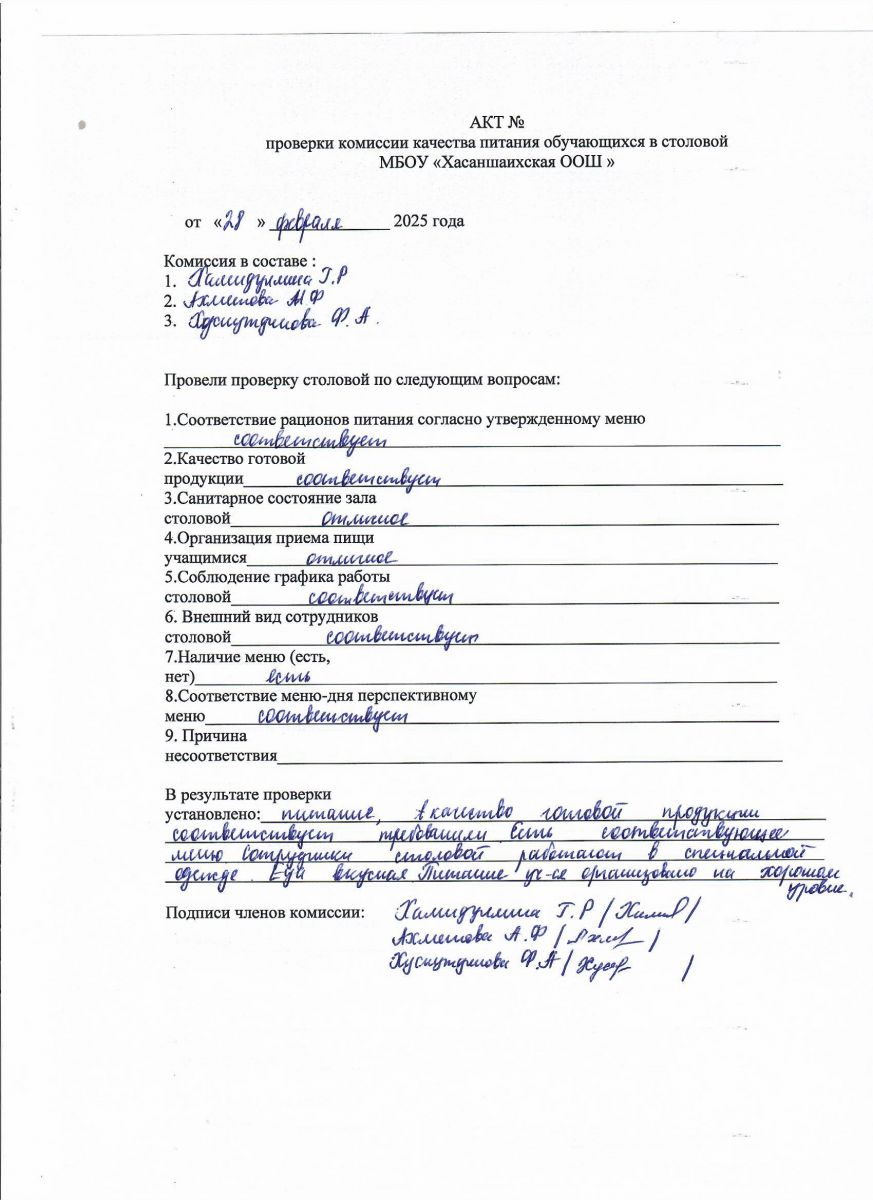 АКТ №
проверки комиссии качества питания обучающихся в столовой
МБОУ «Хасаншаихская ООШ »
от «28 » февраля 2025 года
Комиссия в составе :
1. Хамидуллина Г.Р
2. Ахметова М Ф
3. Хуснутдинова Ф. А.
Провели проверку столовой по следующим вопросам:
1.Соответствие рационов питания согласно утвержденному меню
соответствует
2.Качество готовой
продукции соответствует
3.Санитарное состояние зала
столовой отличное
4.Организация приема пищи
учащимися отличное
5.Соблюдение графика работы
столовой соответствует
6. Внешний вид сотрудников
столовой соответствует
7.Наличие меню (есть,
нет) есть
8.Соответствие меню-дня перспективному
меню соответствует
9. Причина
несоответствия
В результате проверки
установлено: питание, качество готовой продукции
соответствует требованиям Есть соответствующее
меню Сотрудники столовой работают в специальной
одежде. Еда вкусная Питание уч-ся организовано на хорошем
уровне.
Подписи членов комиссии: Хамидуллина Г.Р /
Ахметова А.Ф / /
Хуснутдинова Ф.А / /